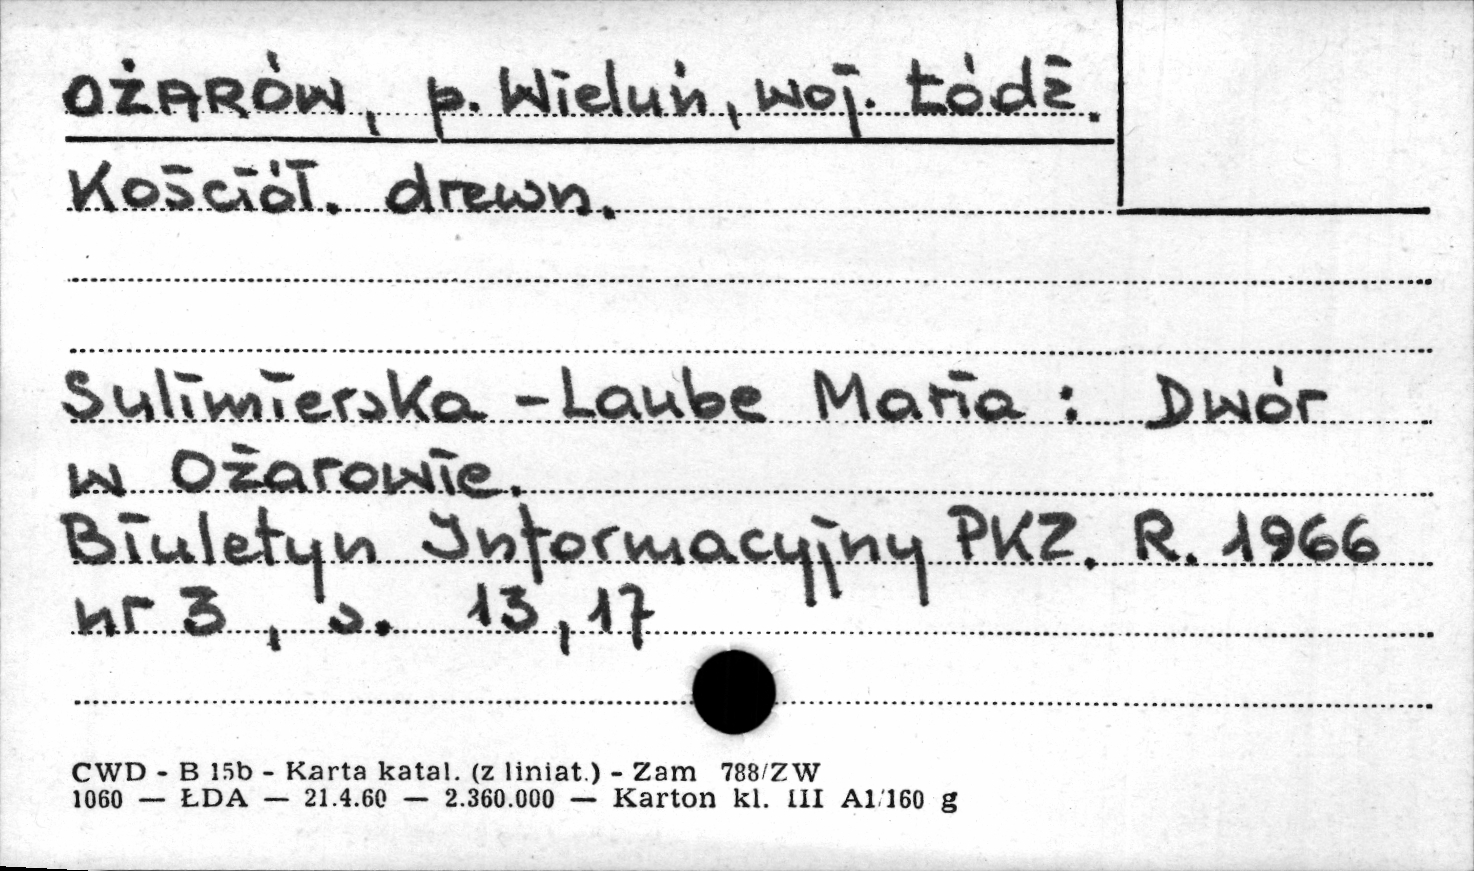 OŻARÓW, p. Wieluń, woj. Łódź.
Kościół. drewn.
Sulimierska - Laube Maria : Dwór
w Ożarowie.
Biuletyn Informacyjny PKZ. R. 1966
nr 3, s. 13, 17
CWD - B 15b - Karta katal. (z liniat.) - Zam 788/ZW
1060 — ŁDA — 21.4.60 — 2.360.000 — Karton kl. III A1/160 g